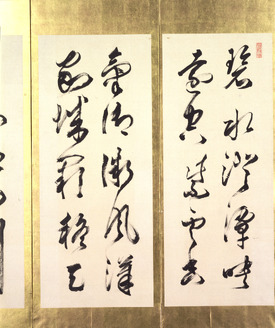 碧水澄潭映
遠空紫雲香
駕御微風漢
家城闕疑天